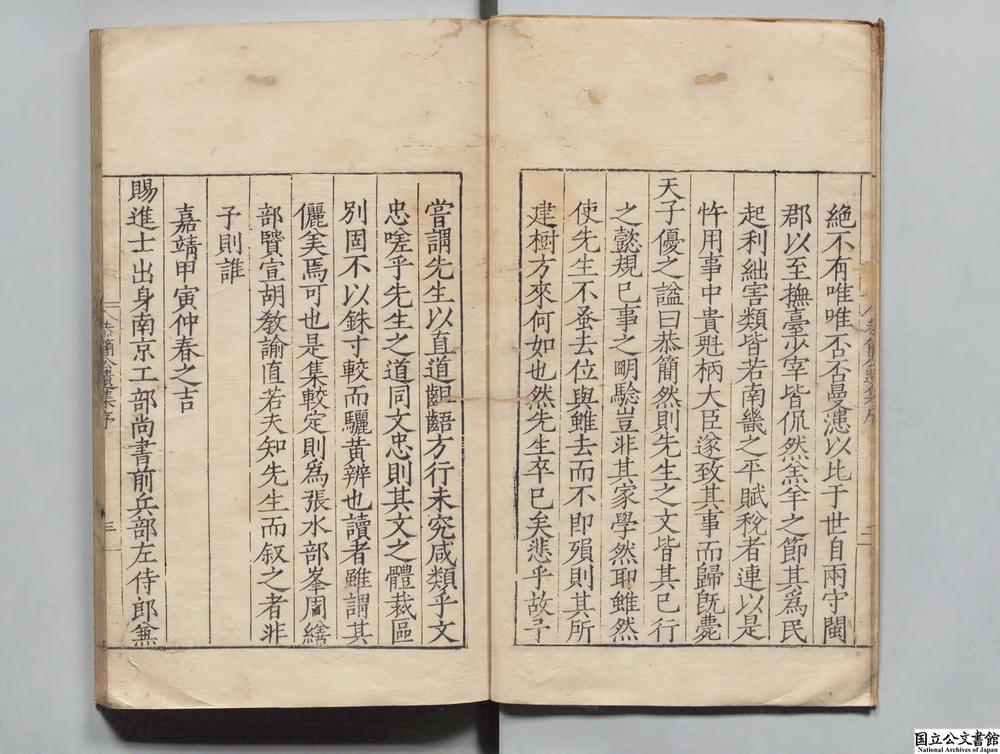 絶不有唯唯否否曼漶以比于世自兩守閩
郡以至撫臺少宰皆侃然羔羊之節其爲民
起利絀害類皆若南畿之平賦稅者連以是
忤用事中貴曁柄大臣遂致其事而歸旣薨
天子優之謚曰恭簡然則先生之文皆其已行
之懿規已事之明驗豈非其家學然耶雖然
使先生不蚤去位與雖去而不即殞則其所
建樹方來何如也然先生卒已矣悲乎故予
嘗謂先生以直道齟齬方行未究咸類乎文
忠嗟乎先生之道同文忠則其文之體裁區
別固不以銖寸較而驪黄辨也讀者雖謂其
儷美焉可也是集較定則爲張水部峯周繕
部賢宣胡敎諭直若夫知先生而叙之者非
子則誰
嘉靖甲寅仲春之吉
賜進士出身南京工部尚書前兵部左侍郎兼
恭簡公遺集序
三
国立公文書館
National Archives of Japan